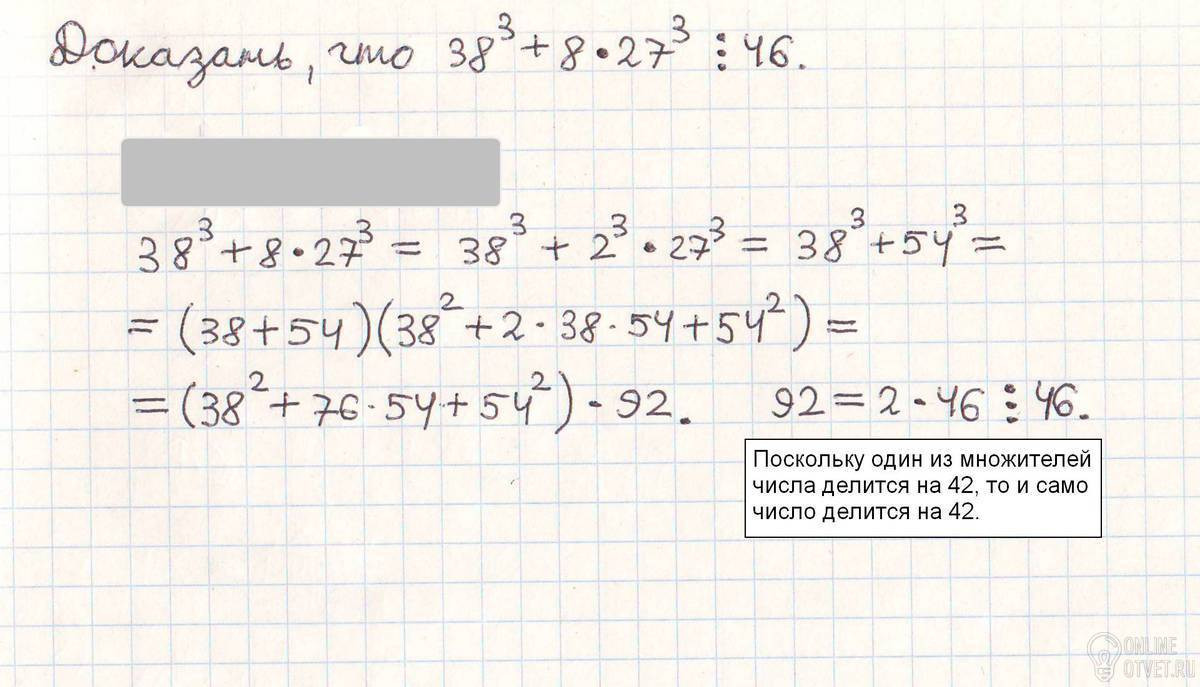 Доказать, что 38³ + 8 · 27³ ⋮ 46.
38³ + 8 · 27³ = 38³ + 2³ · 27³ = 38³ + 54³ =
= (38 + 54)(38² + 2 · 38 · 54 + 54²) =
= (38² + 76 · 54 + 54²) · 92. 92 = 2 · 46 ⋮ 46.
Поскольку один из множителей
числа делится на 42, то и само
число делится на 42.
ONLINE
OTVET.RU